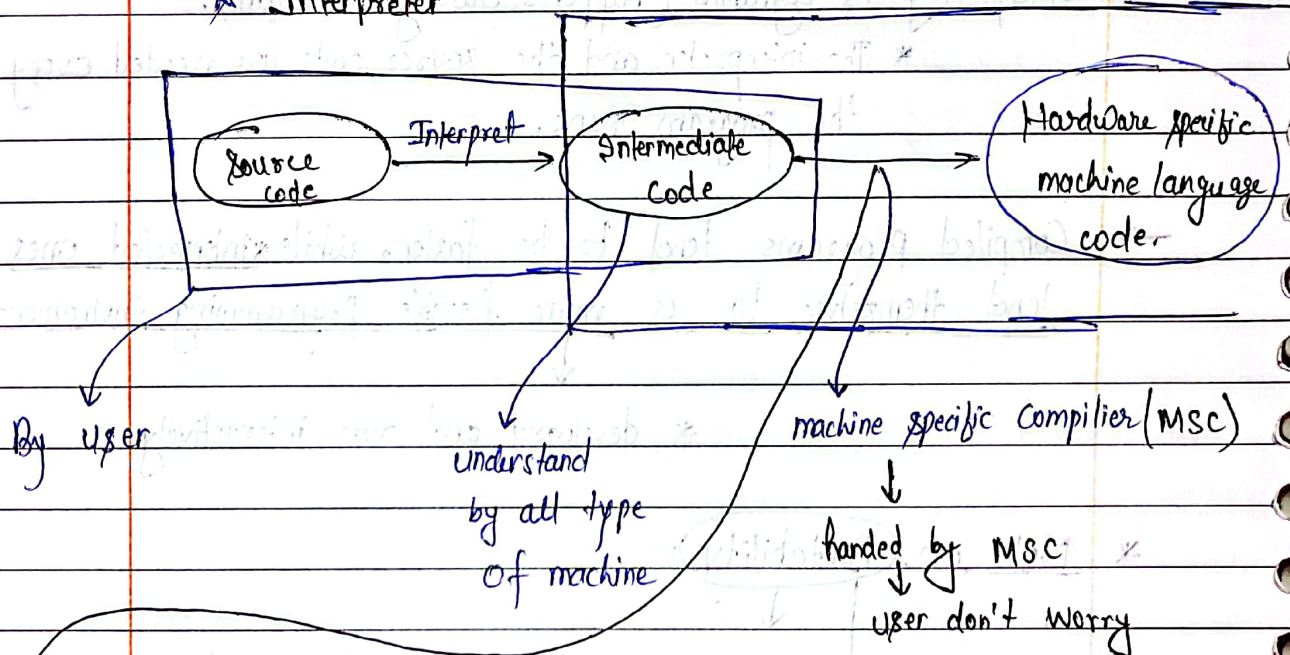 Interpreter
Source
code
Interpret
Intermediate
code
Hardware specific
machine language
code.
By user
understand
by all type
of machine
machine specific Compilier (MSC)
handed by MSC
user don't worry